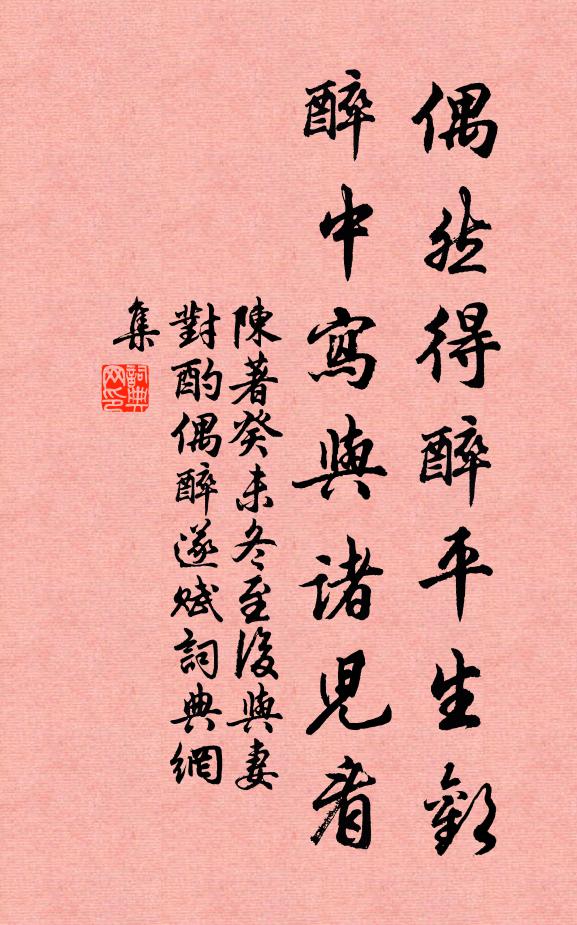 偶然得醉平生歡
醉中寫與諸兒看
陳著癸未冬至後與妻
對酌偶醉遂賦詞典網
集
詞典
网印